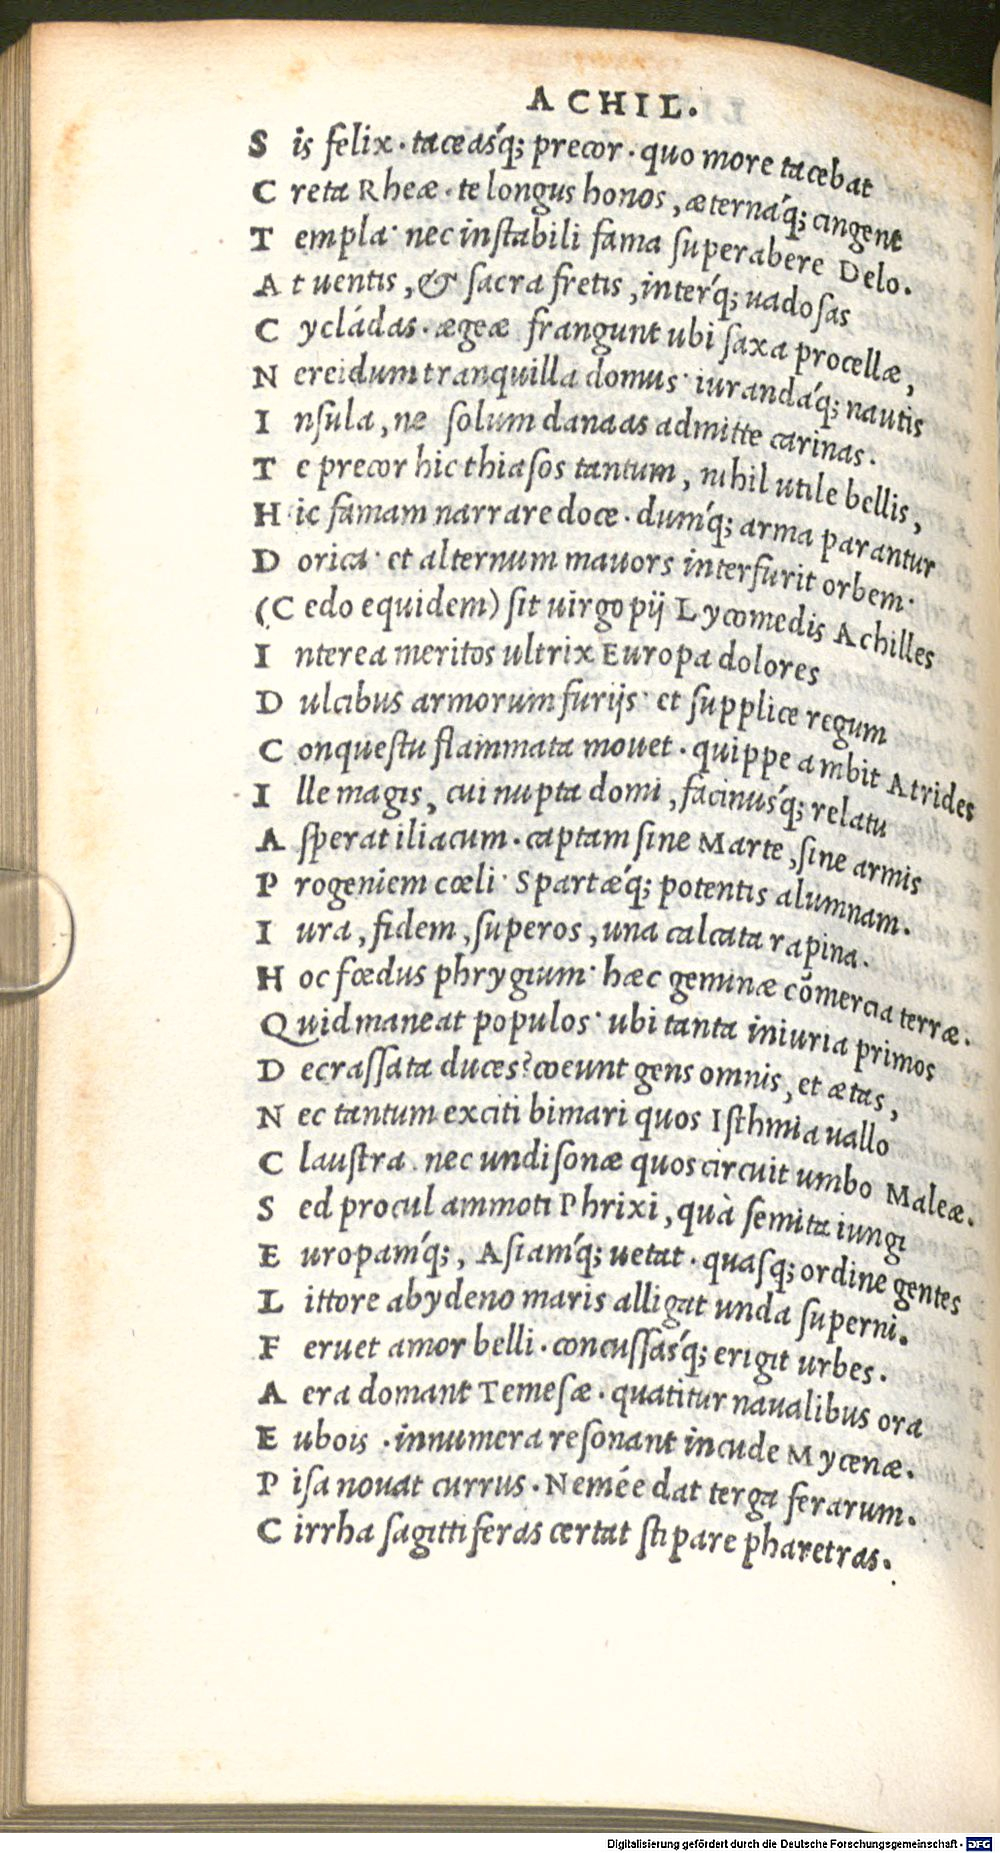 ACHIL.
S is felix · taceasq́; precor · quo more tacebat
C reta Rheæ · te longus honos, æternaq́; cingent
T empla· nec instabili fama superabere Delo.
A t uentis, & sacra fretis, interq́; uadosas
C ycládas · ægeæ frangunt ubi saxa procellæ,
N ereidum tranquilla domus· iurandaq́; nautis
I nsula, ne solum danaas admitte carinas.
T e precor hic thiasos tantum, nihil utile bellis,
H ic famam narrare doce · dumq́; arma parantur
D orica· et alternum mauors interfurit orbem·
(C edo equidem) sit uirgo pij Lycomedis Achilles
I nterea meritos ultrix Europa dolores
D ulcibus armorum furijs· et supplice regum
C onquestu flammata mouet · quippe ambit Atrides
I lle magis, cui nupta domi, facinusq́; relatu
A sperat iliacum · captam sine Marte, sine armis
P rogeniem cœli· Spartæq́; potentis alumnam.
I ura, fidem, superos, una calcata rapina.
H oc fœdus phrygium· hæc geminæ cõmercia terræ.
Quid maneat populos· ubi tanta iniuria primos
D ecrassata duces? coeunt gens omnis, et ætas,
N ec tantum exciti bimari quos Isthmia uallo
C laustra. nec undisonæ quos circuit umbo Maleæ.
S ed procul ammoti Phrixi, quà semita iungi
E uropamq́;, Asiamq́; uetat · quasq; ordine gentes
L ittore abydeno maris alligat unda superni.
F eruet amor belli · concussasq́; erigit urbes.
A era domant Temesæ · quatitur naualibus ora
E ubois · innumera resonant incude Mycenæ.
P isa nouat currus · Nemée dat terga ferarum.
C irrha sagittiferas certat stipare pharetras.
Digitalisierung gefördert durch die Deutsche Forschungsgemeinschaft - DFG